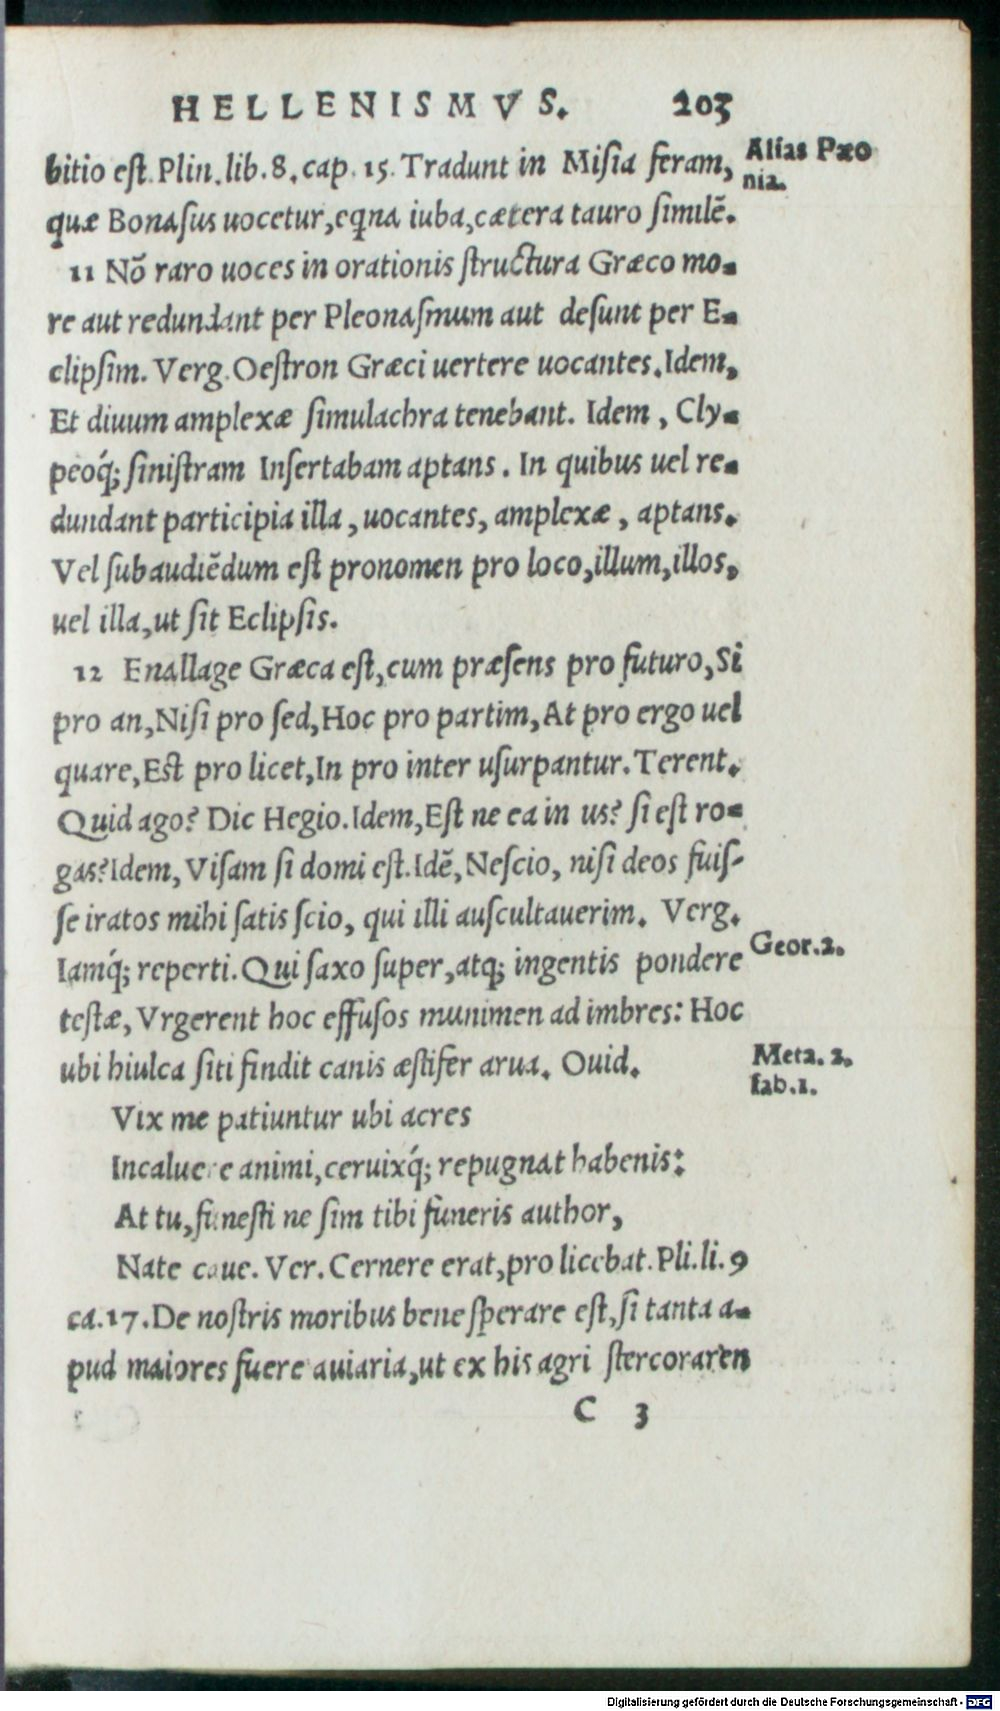 HELLENISMVS. 203
bitio est. Plin. lib. 8. cap. 15. Tradunt in Misia feram,
Alias Pæo
nia.
quæ Bonasus uocetur, eqna iuba, cætera tauro similē.
11 Nō raro uoces in orationis structura Græco mo-
re aut redundant per Pleonasmum aut desunt per E-
clipsim. Verg. Oestron Græci uertere uocantes. Idem,
Et diuum amplexæ simulachra tenebant. Idem, Cly-
peoq́; sinistram Insertabam aptans. In quibus uel re-
dundant participia illa, uocantes, amplexæ, aptans.
Vel subaudiēdum est pronomen pro loco, illum, illos,
uel illa, ut sit Eclipsis.
12 Enallage Græca est, cum præsens pro futuro, Si
pro an, Nisi pro sed, Hoc pro partim, At pro ergo uel
quare, Est pro licet, In pro inter usurpantur. Terent.
Quid ago? Dic Hegio. Idem, Est ne ea in us? si est ro-
gas? Idem, Visam si domi est. Idē, Nescio, nisi deos fuis-
se iratos mihi satis scio, qui illi auscultauerim. Verg.
Iamq́; reperti. Qui saxo super, atq; ingentis pondere
Geor. 2.
testæ, Vrgerent hoc effusos munimen ad imbres: Hoc
ubi hiulca siti findit canis æstifer arua. Ouid.
Meta. 2.
fab. 1.
Vix me patiuntur ubi acres
Incaluere animi, ceruixq́; repugnat habenis:
At tu, funesti ne sim tibi funeris author,
Nate caue. Ver. Cernere erat, pro licebat. Pli. li. 9
ca. 17. De nostris moribus bene sperare est, si tanta a-
pud maiores fuere auiaria, ut ex his agri stercoraren
C 3
Digitalisierung gefördert durch die Deutsche Forschungsgemeinschaft - DFG